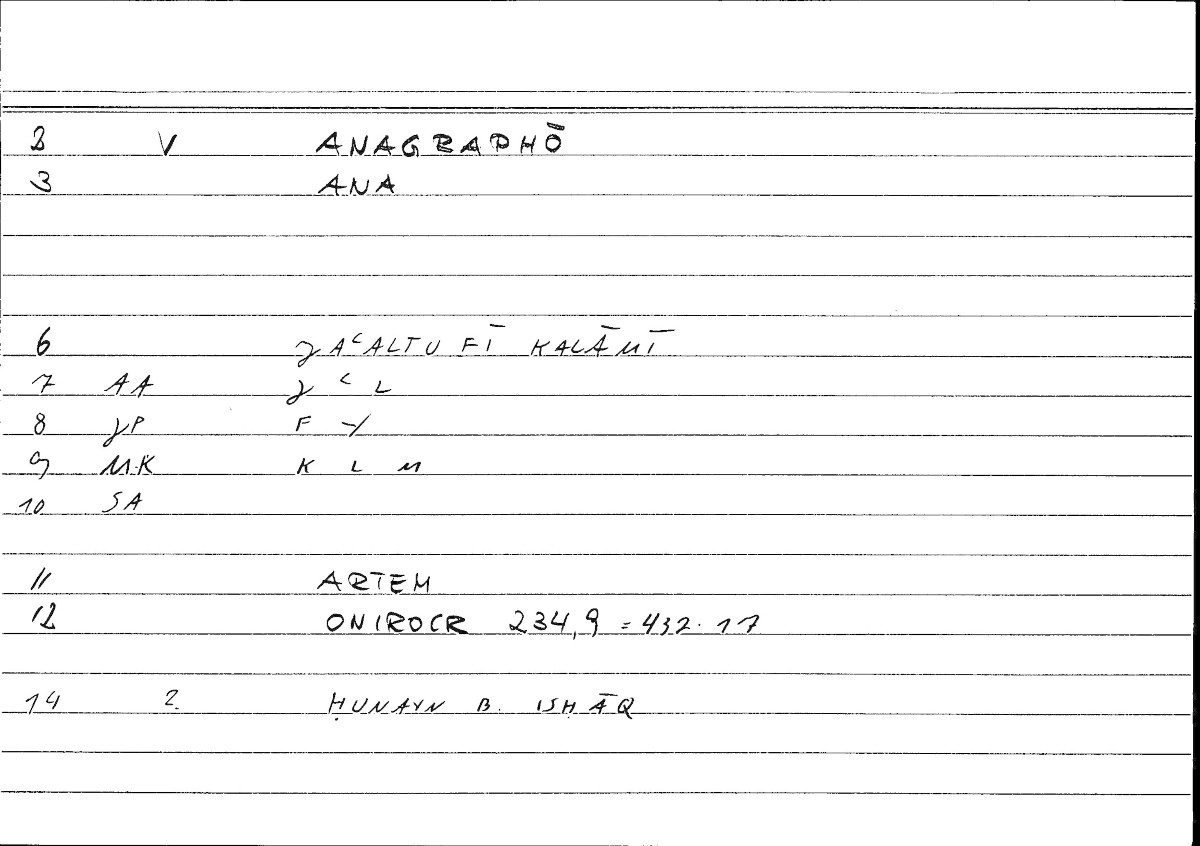 2 V ANAGRAPHŌ
3 ANA
6 ǧAʿALTU FĪ KALĀMĪ
7 AA ǧ ʿ L
8 ǧP F Y
9 MK K L M
10 SA
11 ARTEM
12 ONIROCR 234,9 = 432.17
14 2. ḤUNAYN B. ISḤĀQ